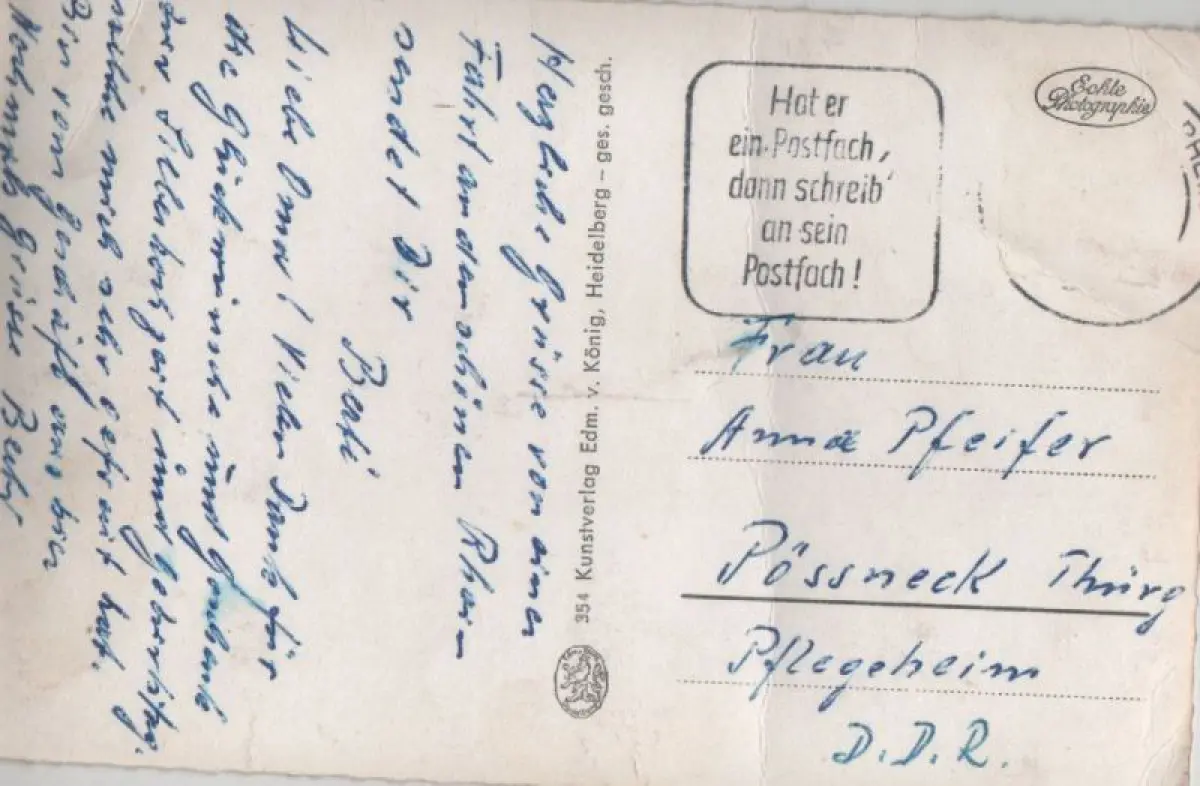 Herzliche Grüsse von einer
Fahrt an den schönen Rhein
sendet Dir
Berti
Liebe Oma! Vielen Dank für
die Glückwünsche und
und Geburtstag.
mich sehr gefreut hat.
Bin vom Geschäft aus hier
Nochmals Grüsse Berti
354 Kunstverlag Edm. v. König, Heidelberg – ges. gesch.
Hat er
ein Postfach,
dann schreib'
an sein
Postfach!
Echte
Photographie
Frau
Anna Pfeifer
Pössneck Thürg
Pflegeheim
D.D.R.